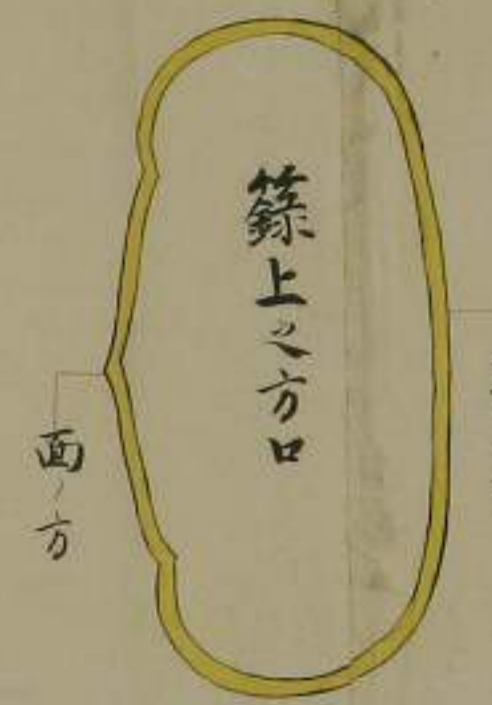 籙上之方口
面ノ方